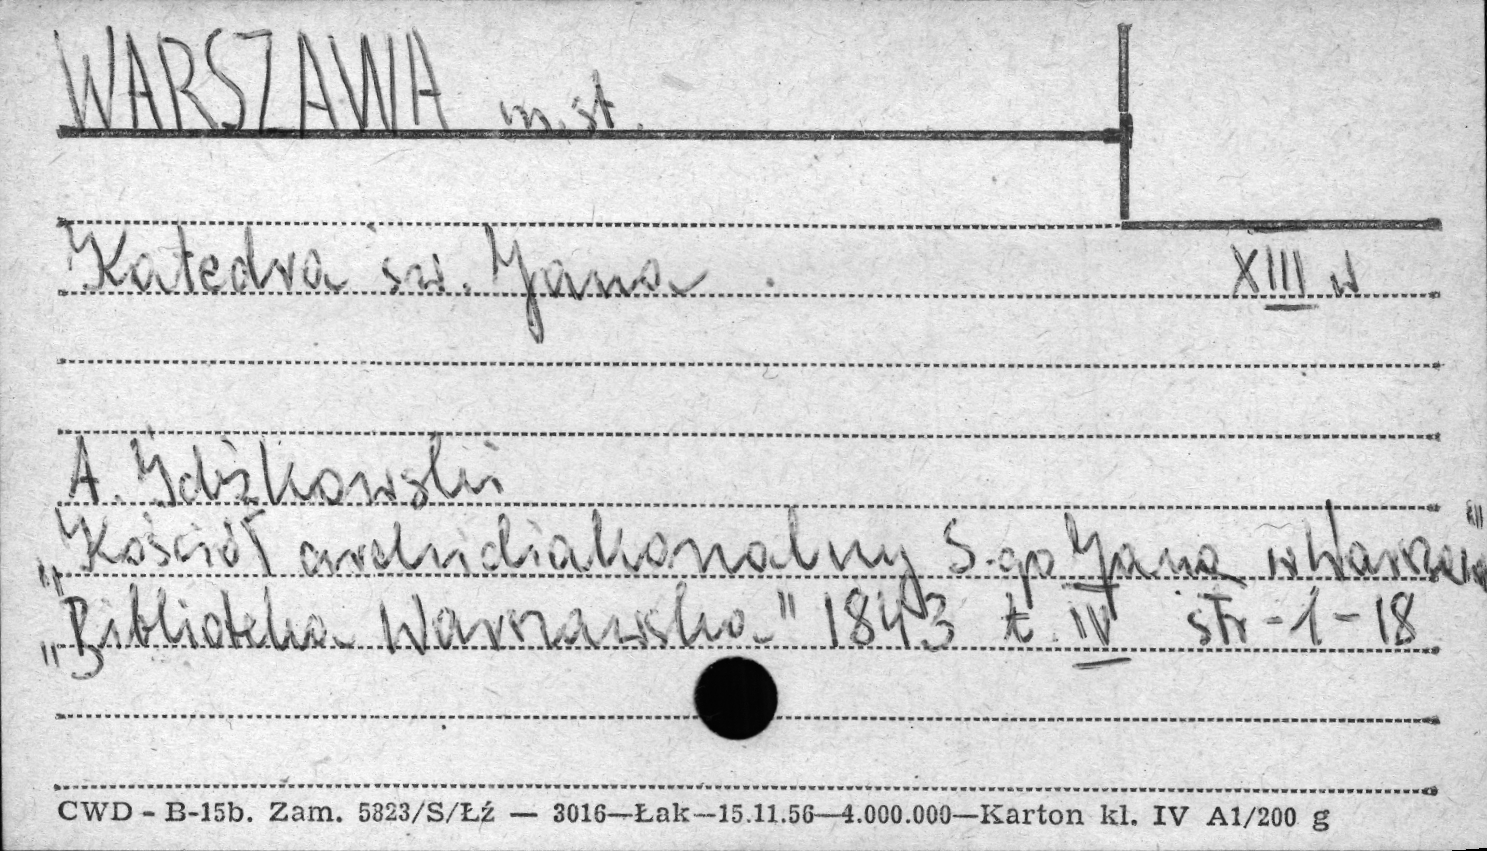 WARSZAWA m. st.
Katedra św. Jana. XIII w
A. Idźkowski
„Kościół archidiakonalny S-go Jana w Warszawie"
„Biblioteka Warszawska" 1843 t. IV str-1-18
CWD - B-15b. Zam. 5823/S/Łź — 3016—Łak—15.11.56—4.000.000—Karton kl. IV A1/200 g